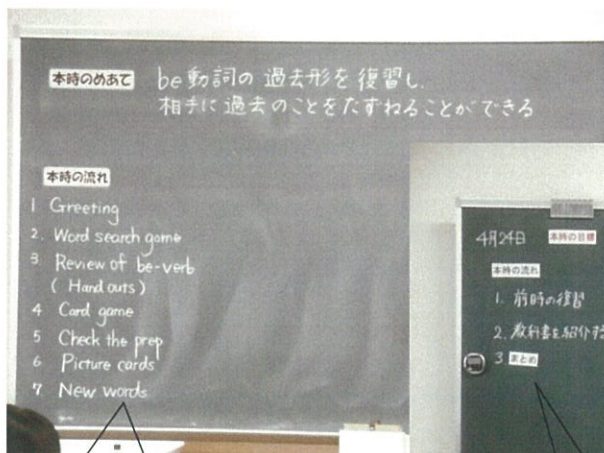 本時のめあて be動詞の過去形を復習し、
相手に過去のことをたずねることができる
本時の流れ
1 Greeting
2. Word search game
3 Review of be-verb
( Hand outs )
4 Card game
5 Check the prep
6 Picture cards
7 New words
4月24日 本時の目標
本時の流れ
1. 前時の復習
2. 教科書を紹介する
3 まとめ